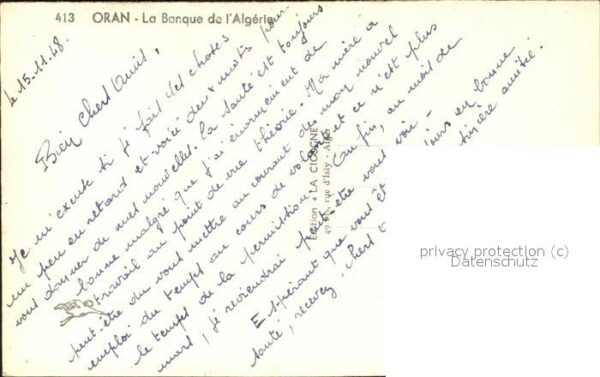 413 ORAN - La Banque de l'Algérie
le 15.11.48
Bien chers amis,
Je m'excuse si je fais des choses
un peu en retard et voici deux mots pour
vous donner de mes nouvelles. La santé est toujours
bonne malgré que j'ai énormément de
travail au point de vue théorie. Ma mère a
peut-être du vous mettre au courant de mon nouvel
emploi du temps au cours de voyage et ce n'est plus
le temps de la permission. Enfin, au mois de
mars, je reviendrai peut-être vous voir.
Espérant que vous êt en bonne
santé, recevez, chers sincère amitié.
Edition "LA CIGOGNE"
49 rue d'Isly - Alger
privacy protection (c)
Datenschutz